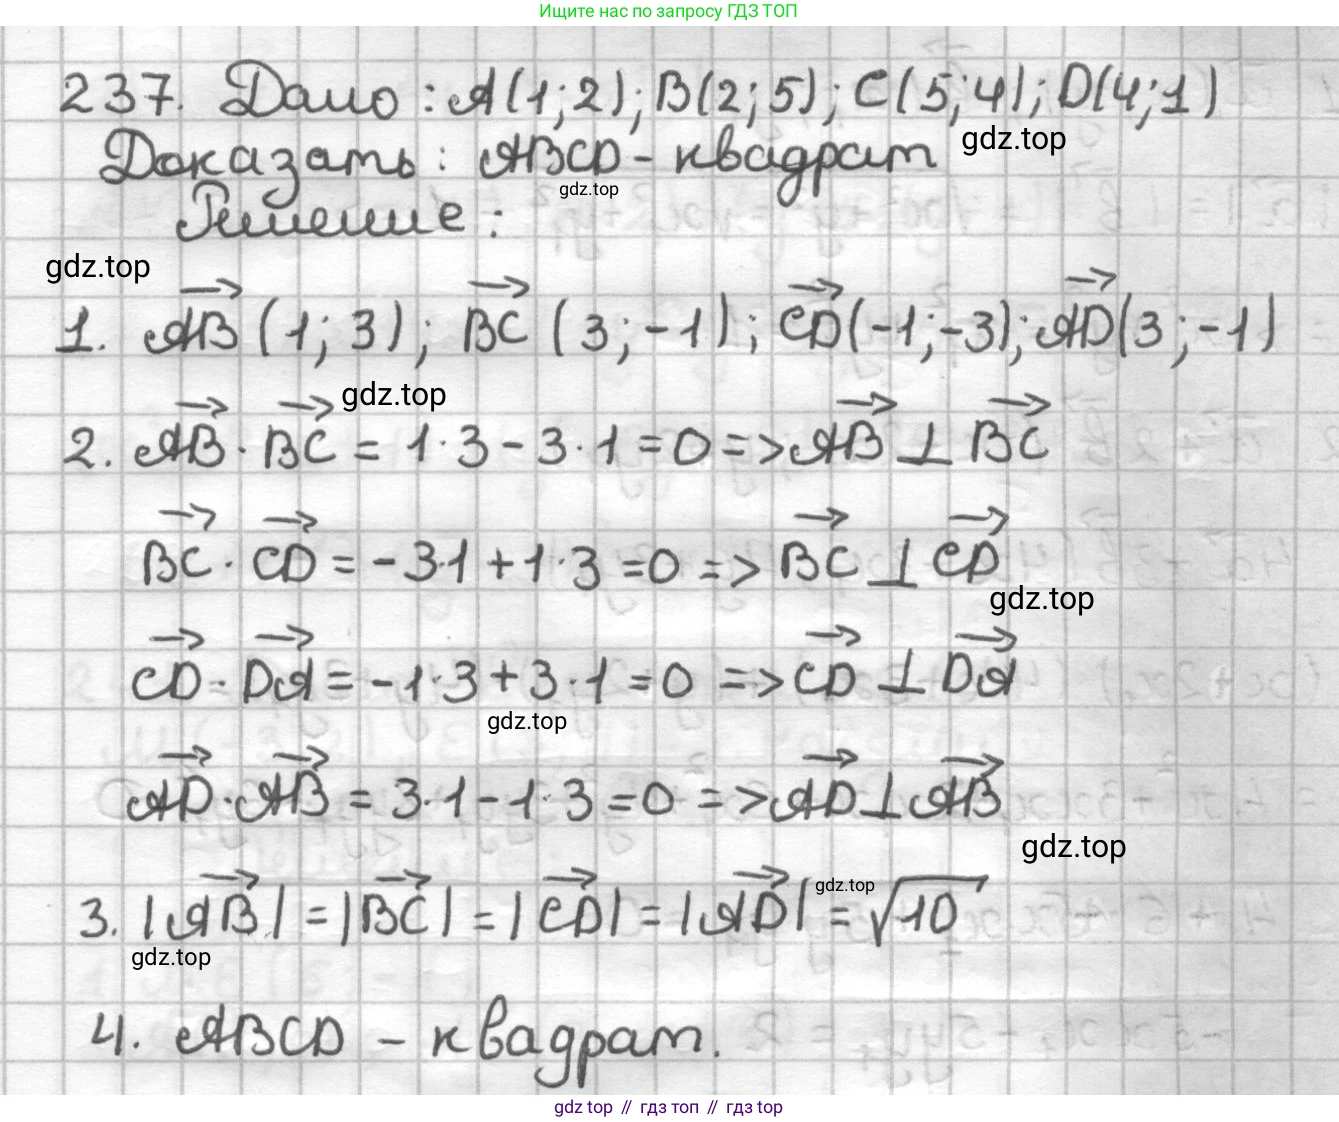 Ищите нас по запросу ГДЗ ТОП
237. Дано: A(1;2); B(2;5); C(5;4); D(4;1)
gdz.top
Доказать: ABCD - квадрат
gdz.top
Решение:
gdz.top
1. AB→ (1; 3); BC→ (3; -1); CD→ (-1; -3); AD→ (3; -1)
gdz.top
2. AB→ · BC→ = 1·3 - 3·1 = 0 => AB→ ⊥ BC→
BC→ · CD→ = -3·1 + 1·3 = 0 => BC→ ⊥ CD→
gdz.top
CD→ · DA→ = -1·3 + 3·1 = 0 => CD→ ⊥ DA→
gdz.top
AD→ · AB→ = 3·1 - 1·3 = 0 => AD→ ⊥ AB→
gdz.top
gdz.top
3. |AB→| = |BC→| = |CD→| = |AD→| = √10
gdz.top
4. ABCD - квадрат.
gdz top // гдз топ // гдз top